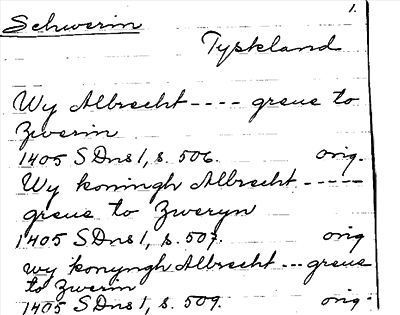 1.
Schwerin
Tyskland
Wy Albrecht ---- greue to
Zwerin
1405 SDns 1, s. 506. orig.
Wy koningh Albrecht -----
greue to Zweryn
1405 SDns 1, s. 507. orig
Wy konyngh Albrecht --- greue
to Zwerin
1405 SDns 1, s. 509. orig.